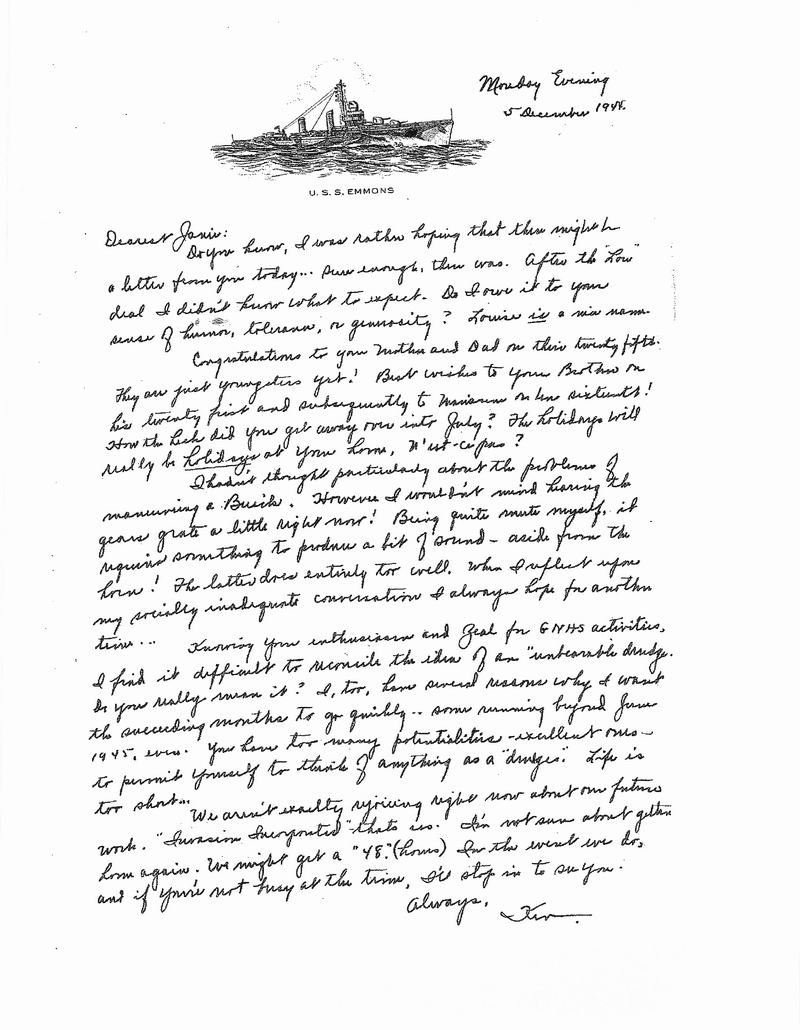 Monday Evening
5 December 1944.
U. S. S. EMMONS
Dearest Janie:
Do you know, I was rather hoping that there might be
a letter from you today... sure enough, there was. After the "Low"
deal I didn't know what to expect. Do I owe it to your
sense of humor, tolerance, or generosity? Louise is a nice name.
Congratulations to your Mother and Dad on their twenty fifth.
They are just youngsters yet! Best wishes to your Brother on
his twenty first and subsequently to on her sixteenth!
How the heck did you get away over into July? The holidays will
really be holidays at your home, N'est-ce pas?
I hadn't thought particularly about the problems of
maneuvering a Buick. However I wouldn't mind hearing the
gears grate a little right now! Being quite mute myself, it
requires something to produce a bit of sound - aside from the
horn! The latter does entirely too well. When I reflect upon
my socially inadequate conversation I always hope for another
time...
Knowing your enthusiasm and zeal for GNHS activities,
I find it difficult to reconcile the idea of an "unbearable drudge.
Do you really mean it? I, too, have several reasons why I want
the succeeding months to go quickly.. some running beyond June
1945, even. You have too many potentialities - excellent ones -
to permit yourself to think of anything as a "drudges." Life is
too short...
We aren't exactly rejoicing right now about our future
work. "Invasion Incorporated" thats us. I'm not sure about gettin
home again. We might get a "48." (hours) In the event we do,
and if you're not busy at the time, I'll stop in to see you.
Always,